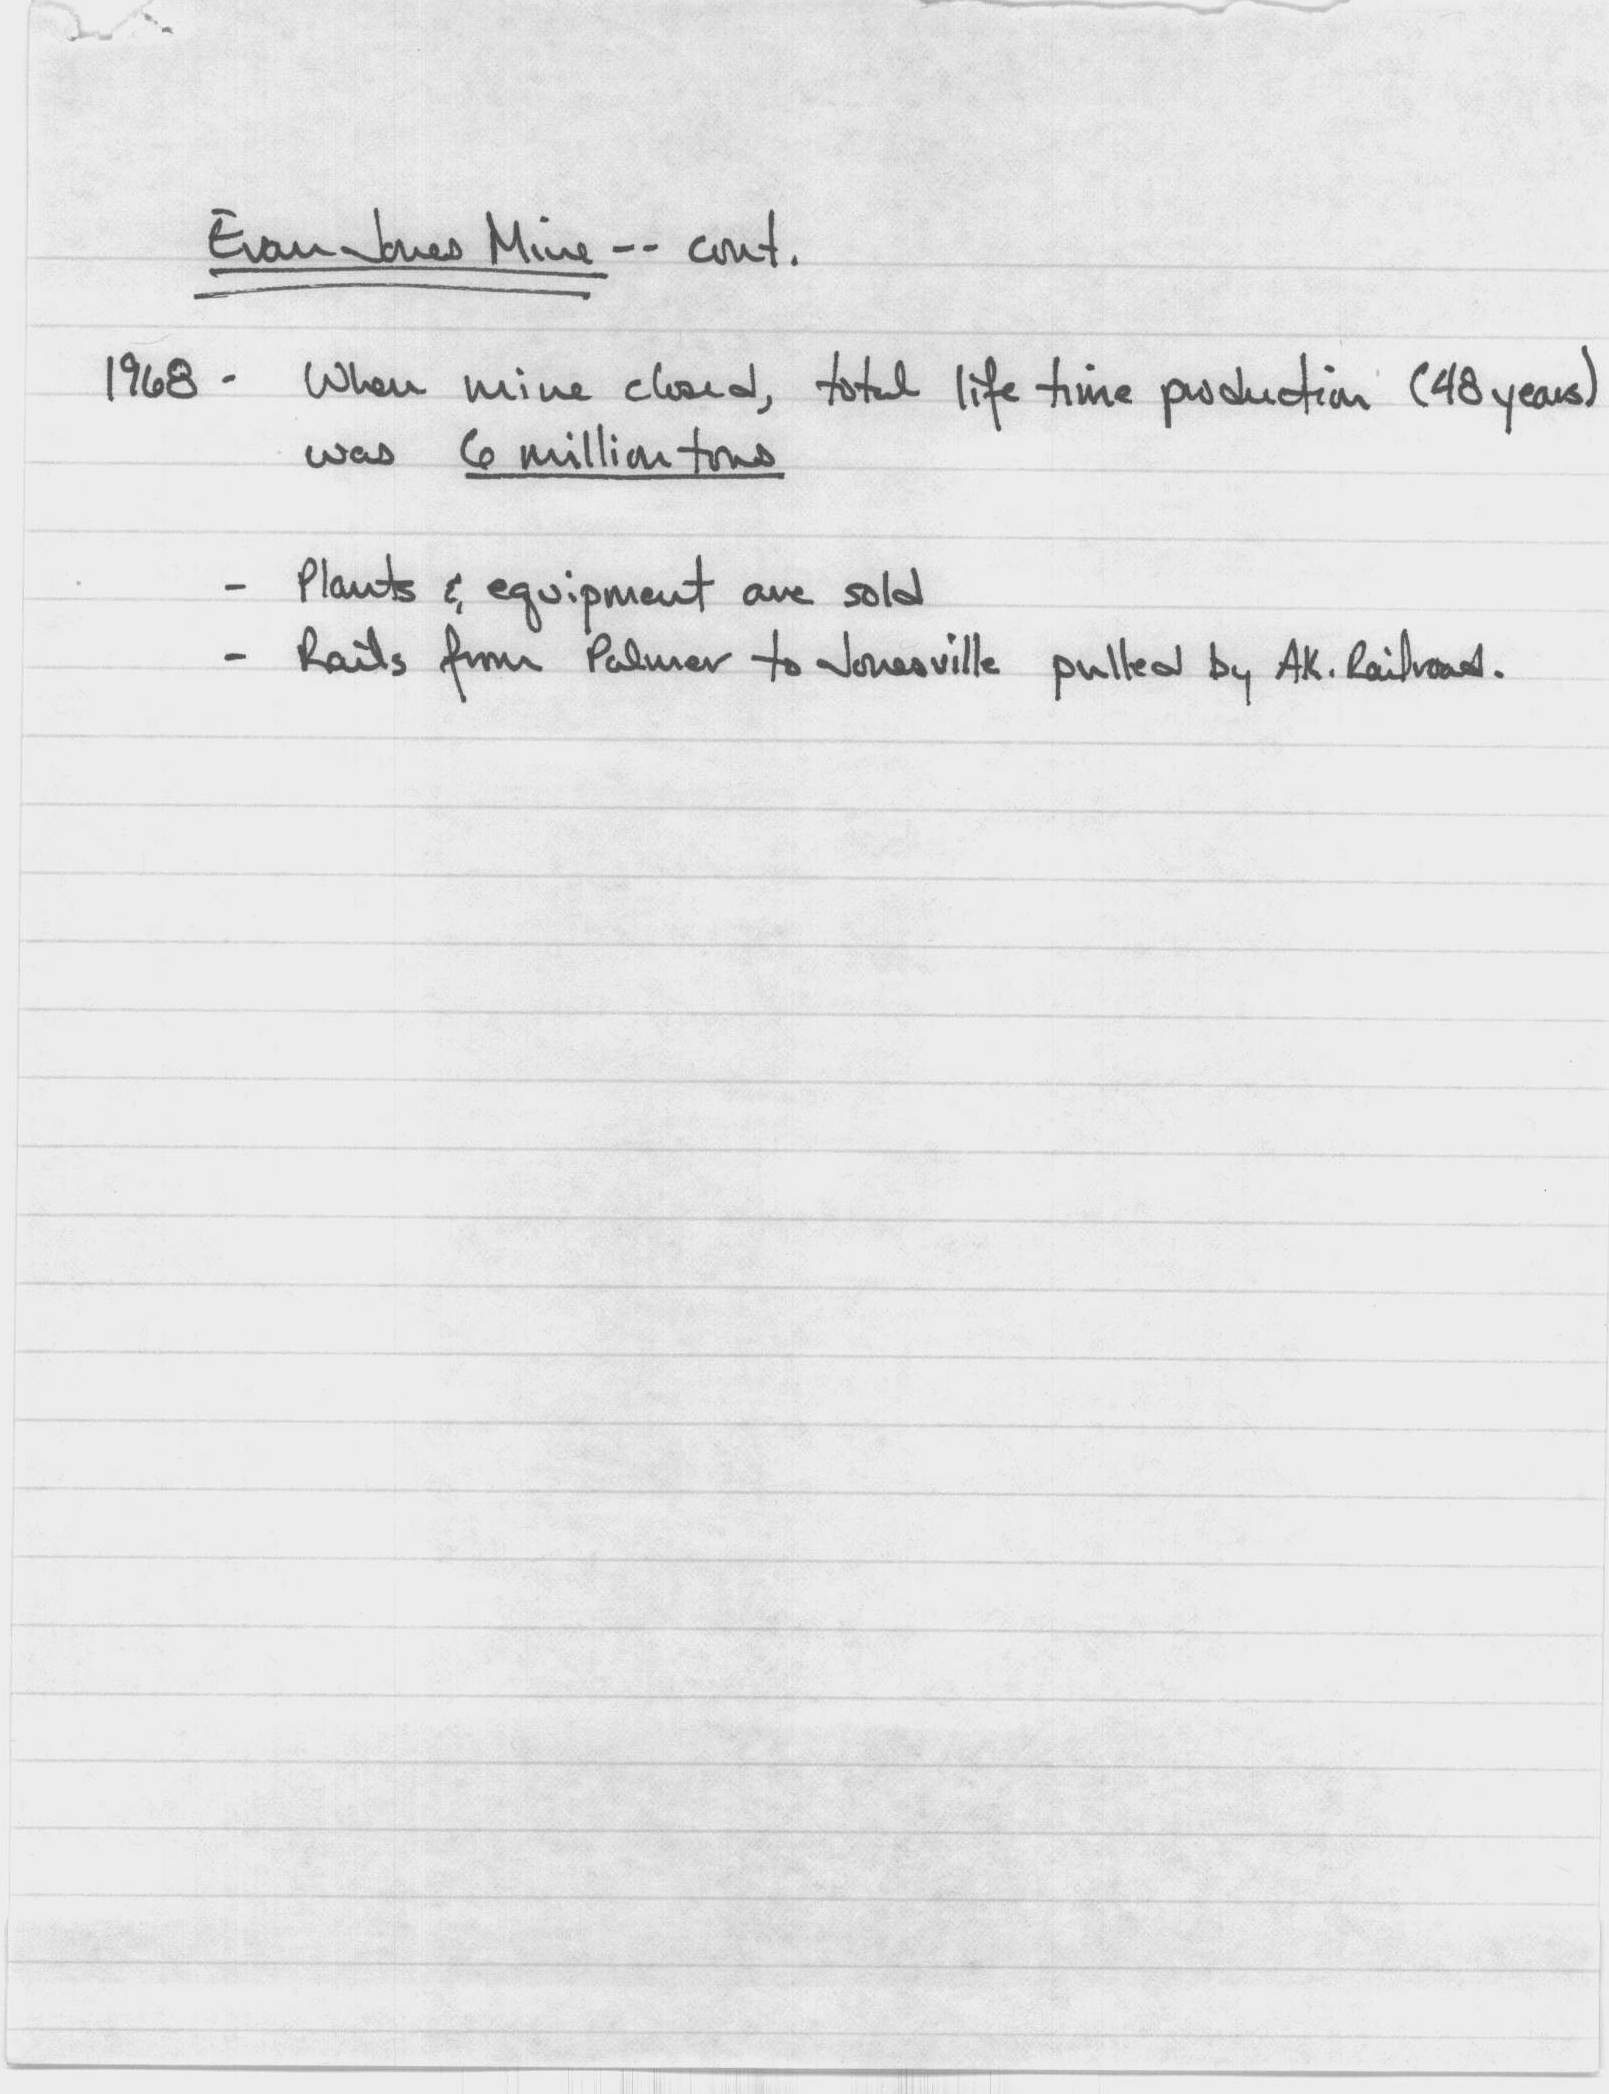 Evan Jones Mine -- cont.
1968 - When mine closed, total life time production (48 years)
was 6 million tons
- Plants & equipment are sold
- Rails from Palmer to Jonesville pulled by AK. Railroad.